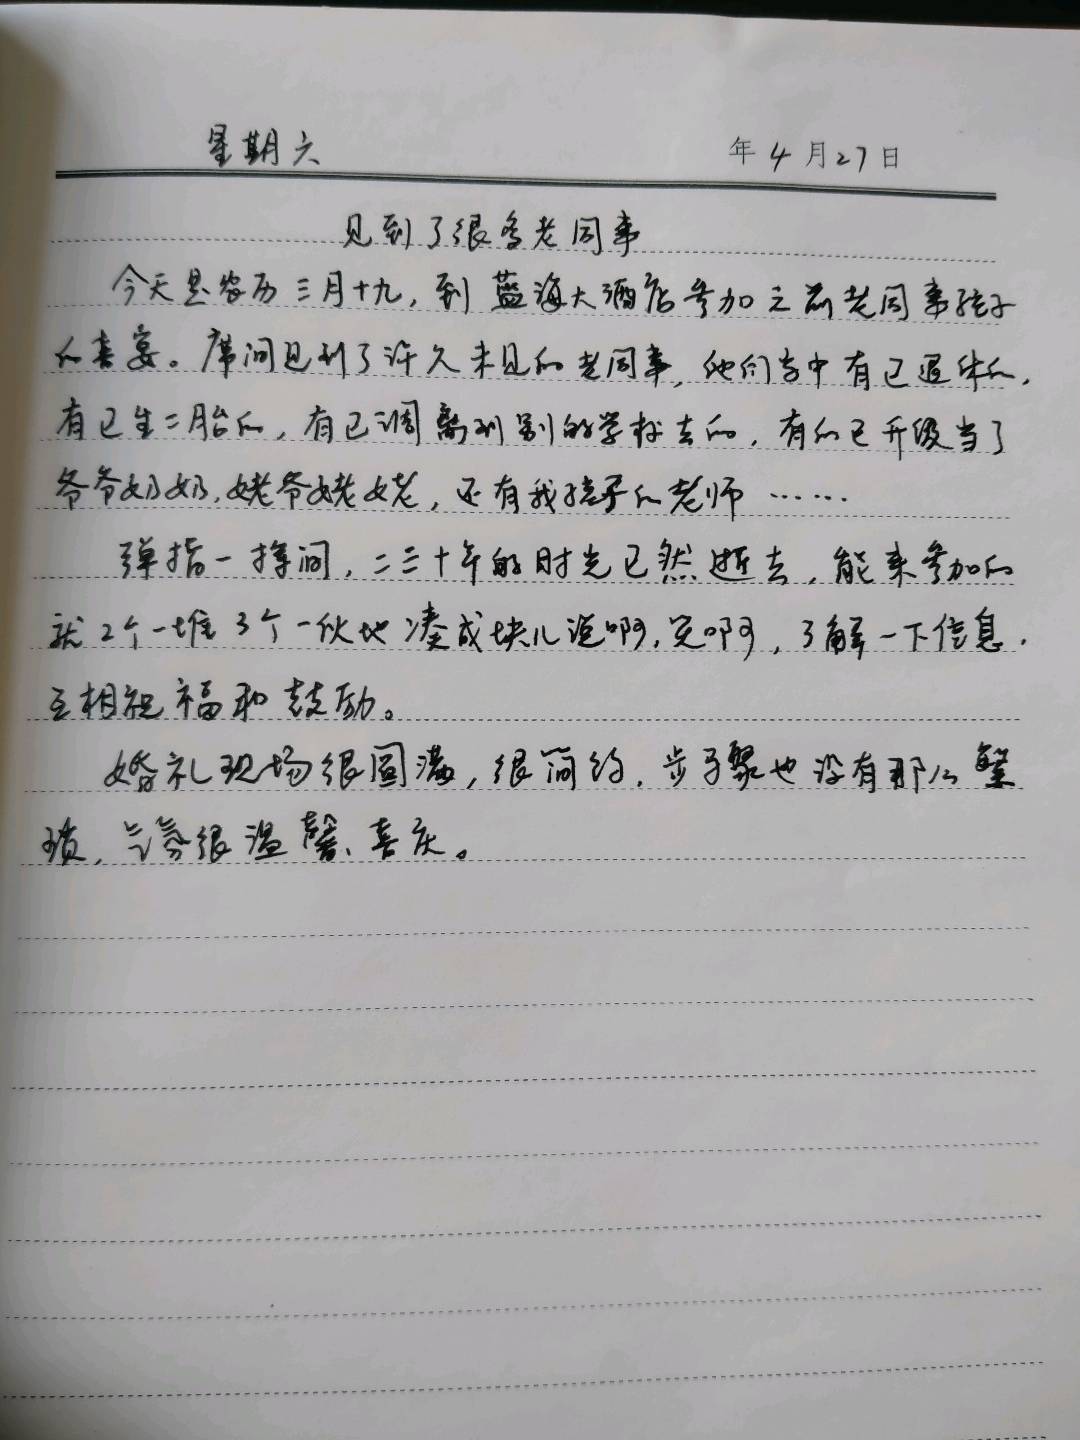 星期六 年4月27日
见到了很多老同事
今天是农历三月十九，到蓝海大酒店参加之前老同事孩子
的喜宴。席间见到了许久未见的老同事，他们当中有已退休的，
有已生二胎的，有已调离到别的学校去的，有的已升级当了
爷爷奶奶，姥爷姥姥，还有我孩子的老师……
弹指一挥间，二三十年的时光已然逝去，能来参加的
就2个一堆3个一伙地凑成块儿说啊，笑啊，了解一下信息，
互相祝福和鼓励。
婚礼现场很圆满，很简约，步骤也没有那么繁
琐，气氛很温馨、喜庆。